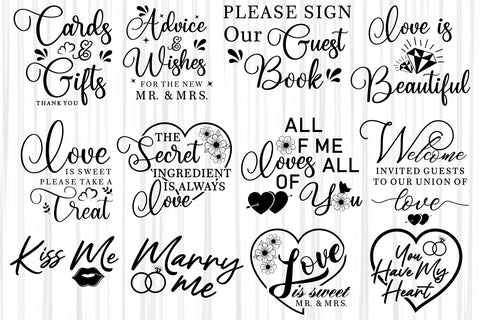 Cards
&
Gifts
THANK YOU
Advice
&
Wishes
FOR THE NEW
MR. & MRS.
PLEASE SIGN
Our Guest
Book
Love is
Beautiful
Love
IS SWEET
PLEASE TAKE A
Treat
THE
Secret
INGREDIENT
IS ALWAYS
Love
ALL
F ME
Loves ALL
OF You
Welcome
INVITED GUESTS
TO OUR UNION OF
love
Kiss Me
Marry
me
Love
is sweet
MR. & MRS.
You
Have My
Heart